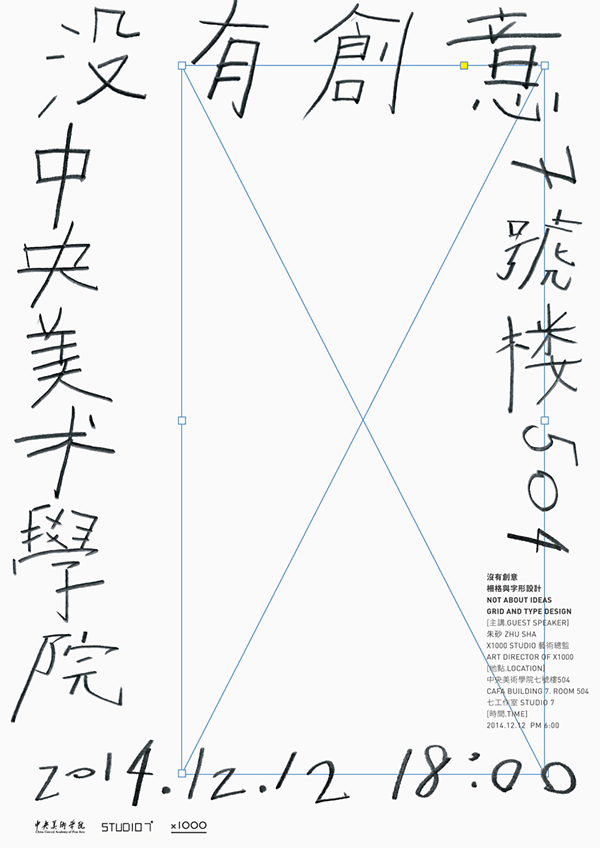 没有創意
中央美术學院
7號楼504
沒有創意
柵格與字形設計
NOT ABOUT IDEAS
GRID AND TYPE DESIGN
[主講.GUEST SPEAKER]
朱砂 ZHU SHA
X1000 STUDIO 藝術總監
ART DIRECTOR OF X1000
[地點.LOCATION]
中央美術學院七號樓504
CAFA BUILDING 7. ROOM 504
七工作室 STUDIO 7
[時間.TIME]
2014.12.12 PM 6:00
2014.12.12 18:00
中央美術學院
China Central Academy of Fine Arts
STUDIO 7
x1000